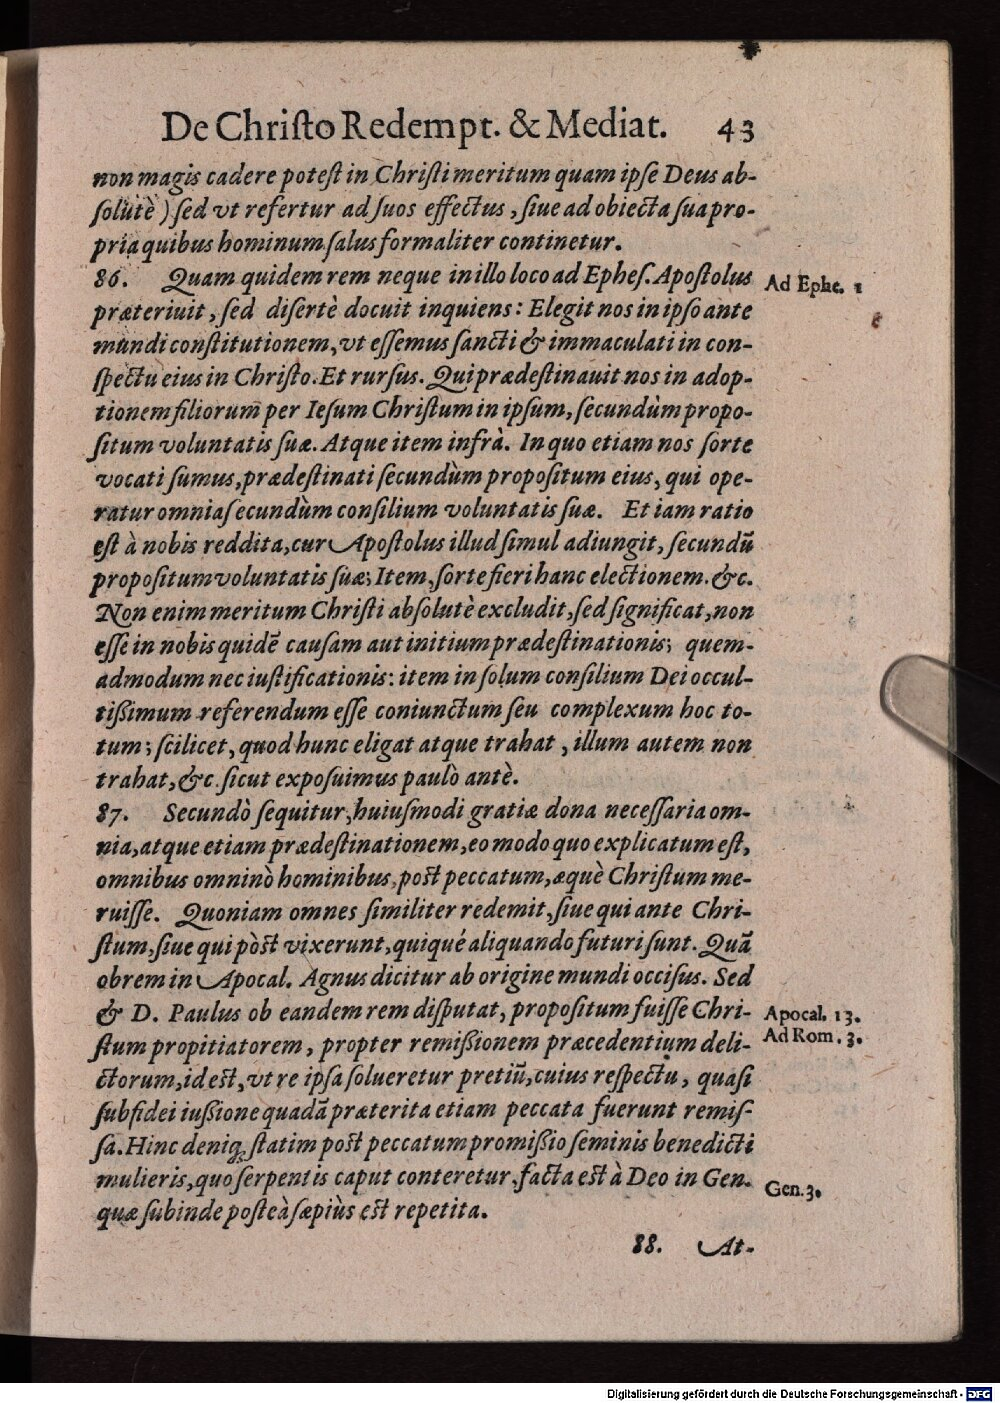 De Christo Redempt. & Mediat. 43
non magis cadere potest in Christi meritum quam ipse Deus ab-
solutè) sed vt refertur ad suos effectus, siue ad obiecta sua pro-
pria quibus hominum salus formaliter continetur.
86. Quam quidem rem neque in illo loco ad Ephes. Apostolus
præteriuit, sed disertè docuit inquiens: Elegit nos in ipso ante
mundi constitutionem, vt essemus sancti & immaculati in con-
spectu eius in Christo. Et rursus. Qui prædestinauit nos in adop-
tionem filiorum per Iesum Christum in ipsum, secundùm propo-
situm voluntatis suæ. Atque item infrà. In quo etiam nos sorte
vocati sumus, prædestinati secundùm propositum eius, qui ope-
ratur omnia secundùm consilium voluntatis suæ. Et iam ratio
est à nobis reddita, cur Apostolus illud simul adiungit, secundũ
propositum voluntatis suæ; Item, sorte fieri hanc electionem. &c.
Non enim meritum Christi absolutè excludit, sed significat, non
esse in nobis quidẽ causam aut initium prædestinationis; quem-
admodum nec iustificationis: item in solum consilium Dei occul-
tissimum referendum esse coniunctum seu complexum hoc to-
tum; scilicet, quod hunc eligat atque trahat, illum autem non
trahat, &c. sicut exposuimus paulò antè.
87. Secundò sequitur, huiusmodi gratiæ dona necessaria om-
nia, atque etiam prædestinationem, eo modo quo explicatum est,
omnibus omninò hominibus, post peccatum, æquè Christum me-
ruisse. Quoniam omnes similiter redemit, siue qui ante Chri-
stum, siue qui pòst vixerunt, quiqué aliquando futuri sunt. Quã
obrem in Apocal. Agnus dicitur ab origine mundi occisus. Sed
& D. Paulus ob eandem rem disputat, propositum fuisse Chri-
stum propitiatorem, propter remissionem præcedentium deli-
ctorum, id est, vt re ipsa solueretur pretiũ, cuius respectu, quasi
sub fidei iussione quadã præterita etiam peccata fuerunt remis-
sa. Hinc deniq; statim post peccatum promissio seminis benedicti
mulieris, quo serpentis caput conteretur, facta est à Deo in Gen.
quæ subinde posteà sæpiùs est repetita.
88. At-
Ad Ephe. 1
Apocal. 13.
Ad Rom. 3.
Gen. 3.
Digitalisierung gefördert durch die Deutsche Forschungsgemeinschaft - DFG